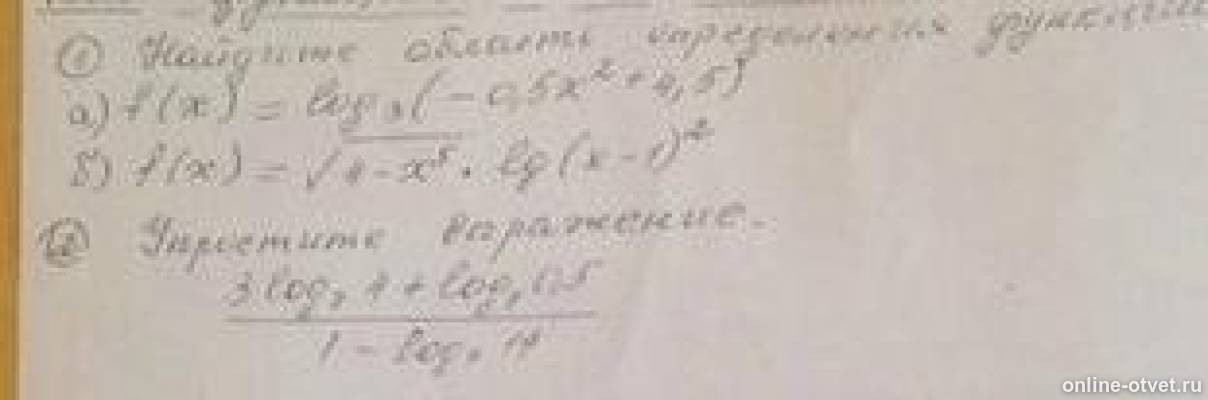 ① Найдите область определения функции
а) f(x) = log₃(-0,5x² + 4,5)
б) f(x) = √4-x⁵ · lg(x-1)²
② Упростите выражение.
3 log₇ 4 + log₇ 0,5
1 - log₇ 14
online-otvet.ru